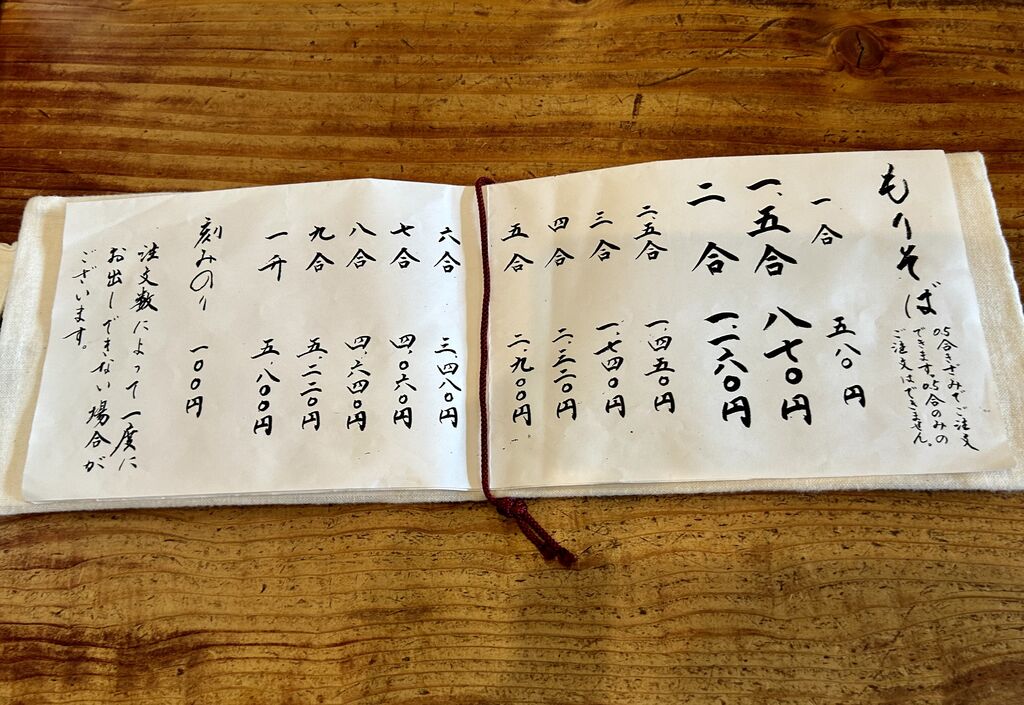 もりそば
0.5合きざみでご注文
できます。0.5合のみの
ご注文はできません。
一合 五八〇円
一.五合 八七〇円
二合 一.一六〇円
二.五合 一.四五〇円
三合 一.七四〇円
四合 二.三二〇円
五合 二.九〇〇円
六合 三.四八〇円
七合 四.〇六〇円
八合 四.六四〇円
九合 五.二二〇円
一升 五.八〇〇円
刻みのり 一〇〇円
注文数によって一度に
お出しできない場合が
ございます。